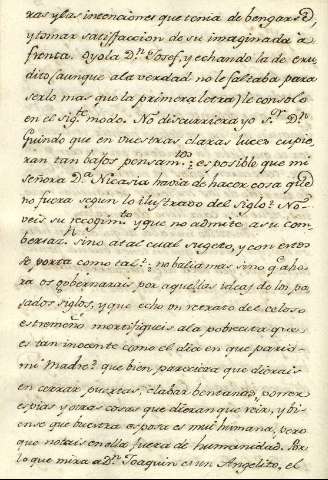 ras y las intenciones que tenia de bengarse,
y tomar satisfaccion de su imaginada a
frenta. Oyola Dn. Josef, y echando la de eru
dito (aunque ala verdad no le faltaba para
serlo mas que la primera letra) le consolo
en el sigte. modo. No discurriera yo Sr. Dn.
Guindo que en vuestras claras luces cupie
ran tan bajos pensamtos.: es posible que mi
señora Da. Nicasia havia de hacer cosa que
no fuera segun lo ilustrado del Siglo? No
veis su recogimto. y que no admite a su com
bersazn. sino atal cual sugeto, y con estos
se porta como tal?: no baliamas sino qe. aho
ra os gobernarais por aquellas ideas de los pa
sados siglos, y que echo un retrato del celoso
estremeño mortifiqueis ala pobrecita que
es tan inocente como el dia en que pario
mi Madre? que bien pareciera que dierais
en cerrar puertas, clabar bentanas, poner
espias y otras cosas que dieran que reir, y bi
ense que buestra esposa es mui humana, pero
que notais en ella fuera de humanidad. Por
lo que mira a Dn. Joaquin es un Angelito, el